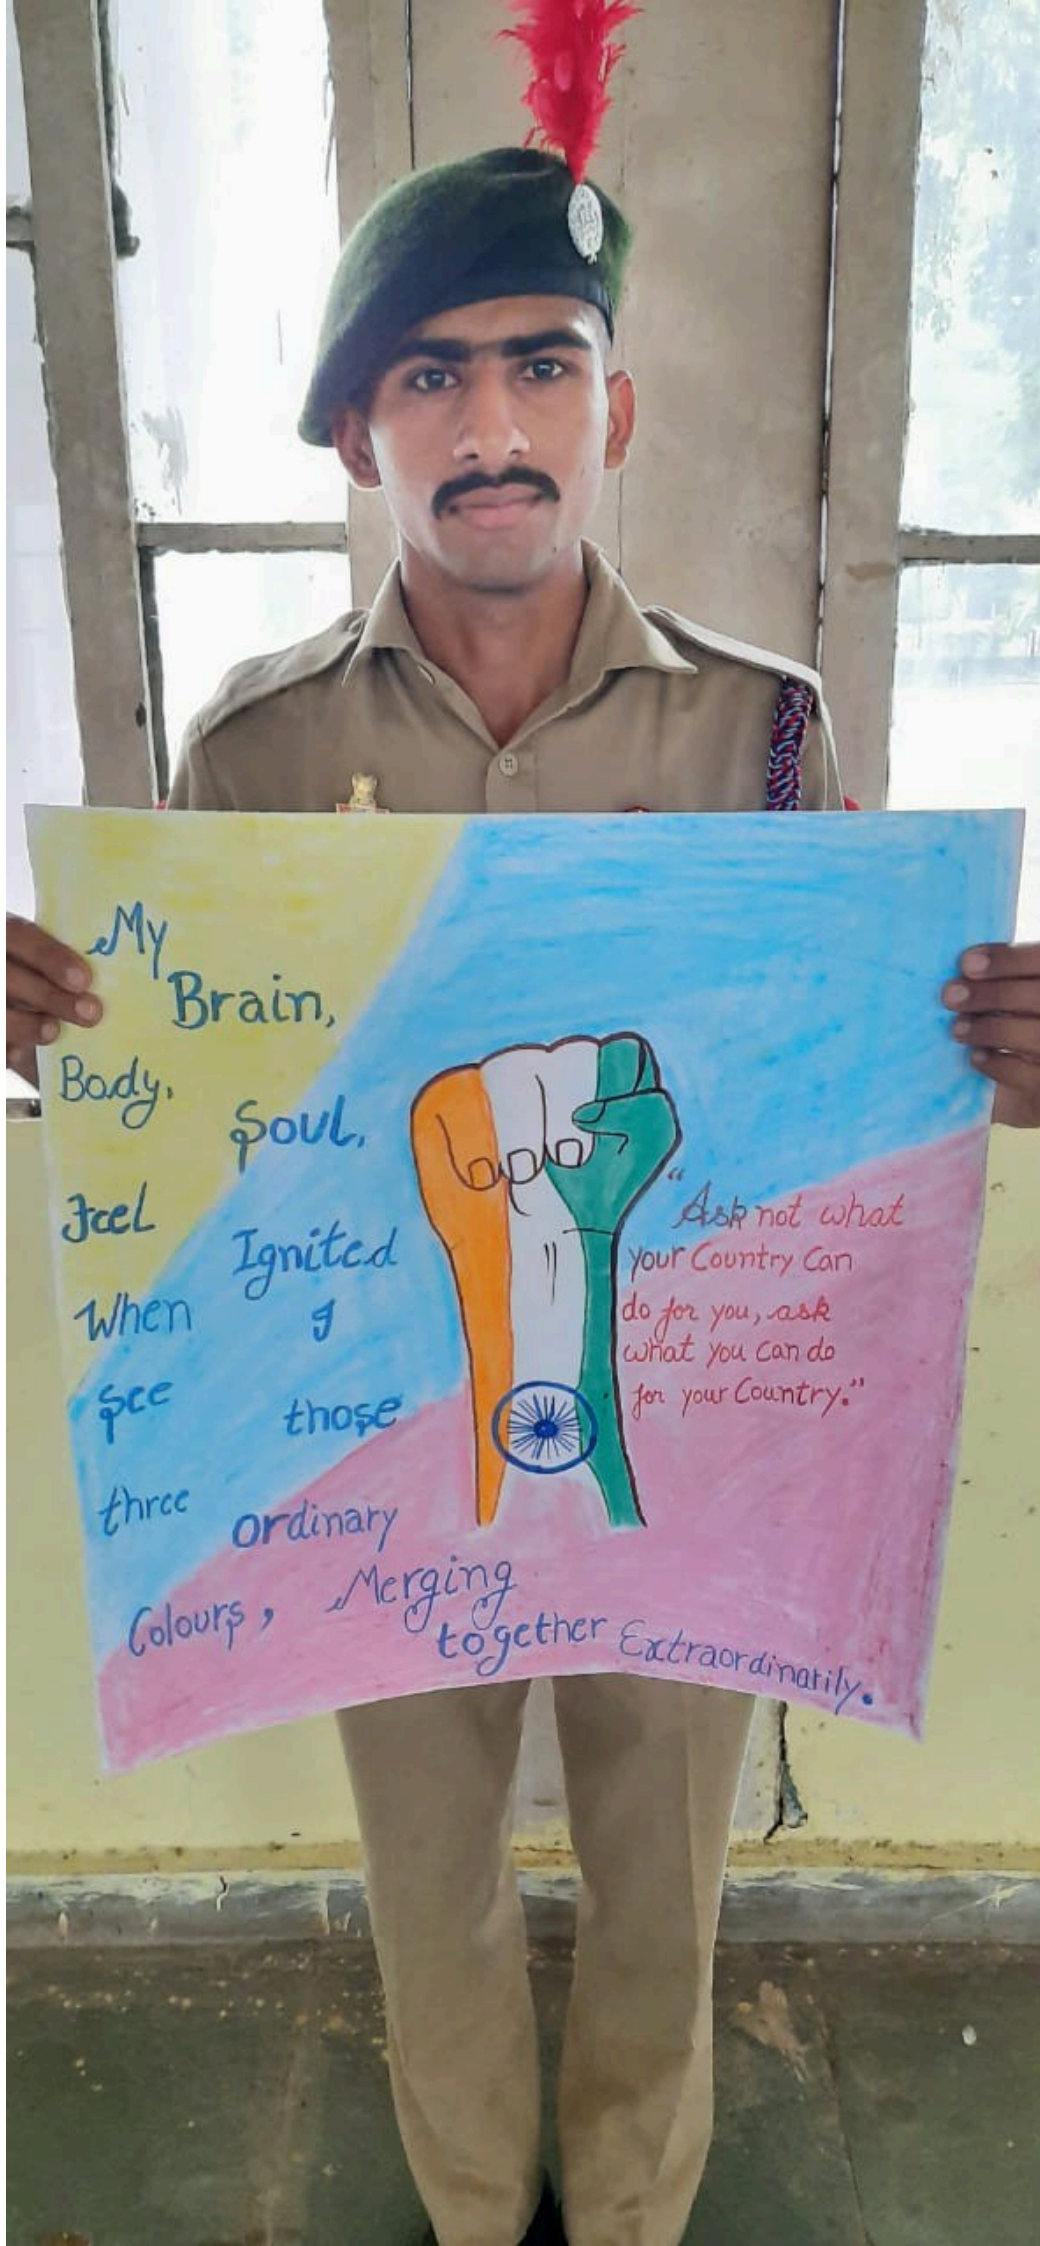 My
Brain,
Body, Soul,
Feel Ignited
When I
See those
three ordinary
Colours, Merging
together Extraordinarily.
"Ask not what
your Country Can
do for you, ask
what you can do
for your Country."